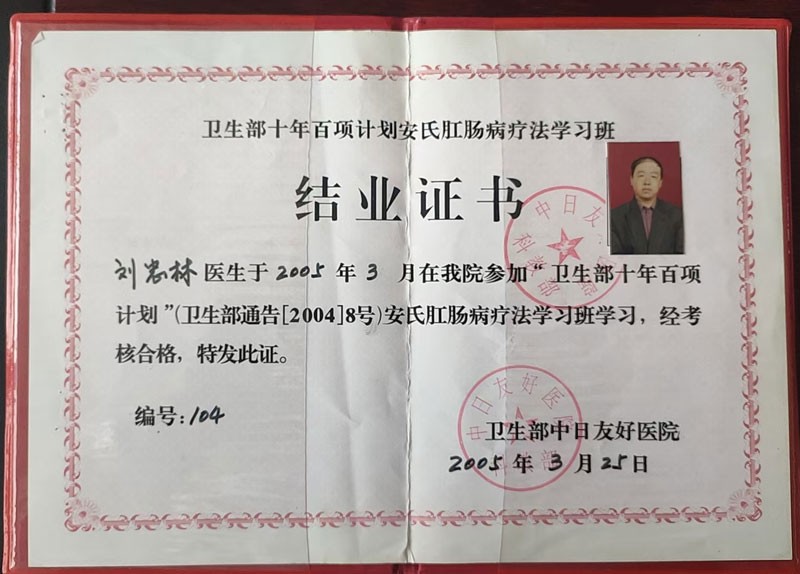 卫生部十年百项计划安氏肛肠病疗法学习班
结业证书
刘忠林医生于2005年3月在我院参加“卫生部十年百项
计划”(卫生部通告[2004]8号)安氏肛肠病疗法学习班学习，经考
核合格，特发此证。
编号:104
卫生部中日友好医院
2005年3月25日
中日友好医院
科教部
中日友好医院